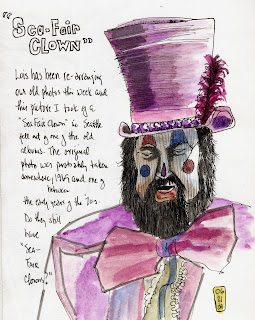 "Sea-Fair
Clown"
Lois has been re-arranging
our old photos this week and
this picture I took of a
"Sea Fair Clown" in Seattle
fell out of one of the old
albums. The original
photo was probably taken
somewhere between 1969 and one of
the early years of the '70s.
Do they still
have
"Sea-
Fair
Clowns?"